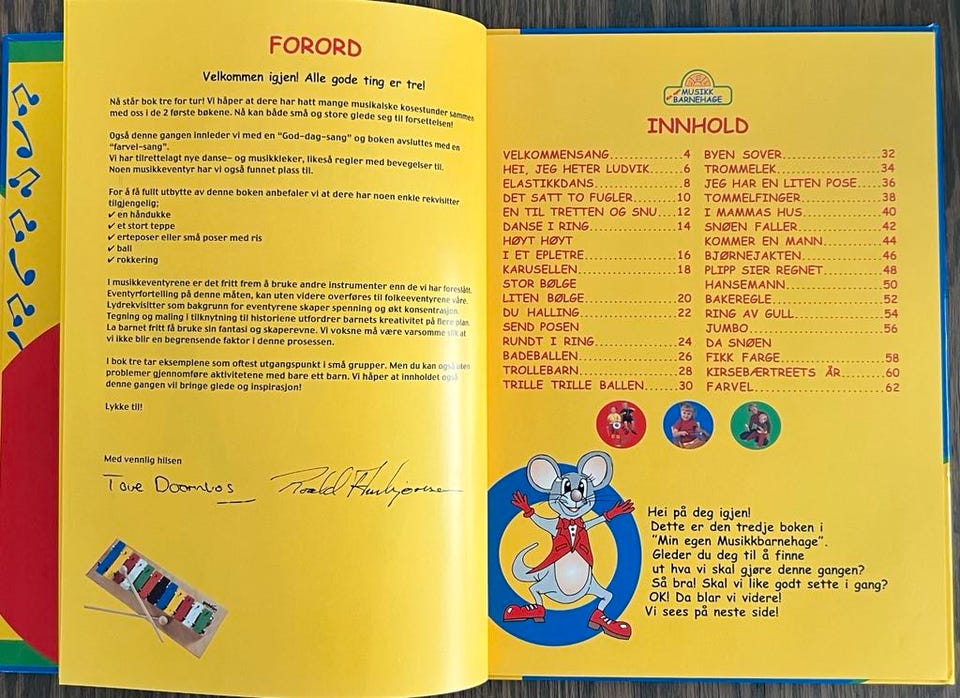 FORORD
Velkommen igjen! Alle gode ting er tre!
Nå står bok tre for tur! Vi håper at dere har hatt mange musikalske kosestunder sammen
med oss i de 2 første bøkene. Nå kan både små og store glede seg til forsettelsen!
Også denne gangen innleder vi med en "God-dag-sang" og boken avsluttes med en
"farvel-sang".
Vi har tilrettelagt nye danse- og musikkleker, likeså regler med bevegelser til.
Noen musikkeventyr har vi også funnet plass til.
For å få fullt utbytte av denne boken anbefaler vi at dere har noen enkle rekvisitter
tilgjengelig;
✓ en håndukke
✓ et stort teppe
✓ erteposer eller små poser med ris
✓ ball
✓ rokkering
I musikkeventyrene er det fritt frem å bruke andre instrumenter enn de vi har foreslått.
Eventyrfortelling på denne måten, kan uten videre overføres til folkeeventyrene våre.
Lydrekvisitter som bakgrunn for eventyrene skaper spenning og økt konsentrasjon.
Tegning og maling i tilknytning til historiene utfordrer barnets kreativitet på flere plan.
La barnet fritt få bruke sin fantasi og skaperevne. Vi voksne må være varsomme slik at
vi ikke blir en begrensende faktor i denne prosessen.
I bok tre tar eksemplene som oftest utgangspunkt i små grupper. Men du kan også uten
problemer gjennomføre aktivitetene med bare ett barn. Vi håper at innholdet også
denne gangen vil bringe glede og inspirasjon!
Lykke til!
Med vennlig hilsen
Tove Doornbos
MUSIKK
BARNEHAGE
INNHOLD
VELKOMMENSANG 4
HEI, JEG HETER LUDVIK 6
ELASTIKKDANS 8
DET SATT TO FUGLER 10
EN TIL TRETTEN OG SNU 12
DANSE I RING 14
HØYT HØYT
I ET EPLETRE 16
KARUSELLEN 18
STOR BØLGE
LITEN BØLGE 20
DU HALLING 22
SEND POSEN
RUNDT I RING 24
BADEBALLEN 26
TROLLEBARN 28
TRILLE TRILLE BALLEN 30
BYEN SOVER 32
TROMMELEK 34
JEG HAR EN LITEN POSE 36
TOMMELFINGER 38
I MAMMAS HUS 40
SNØEN FALLER 42
KOMMER EN MANN 44
BJØRNEJAKTEN 46
PLIPP SIER REGNET 48
HANSEMANN 50
BAKEREGLE 52
RING AV GULL 54
JUMBO 56
DA SNØEN
FIKK FARGE 58
KIRSEBÆRTREETS ÅR 60
FARVEL 62
Hei på deg igjen!
Dette er den tredje boken i
"Min egen Musikkbarnehage".
Gleder du deg til å finne
ut hva vi skal gjøre denne gangen?
Så bra! Skal vi like godt sette i gang?
OK! Da blar vi videre!
Vi sees på neste side!